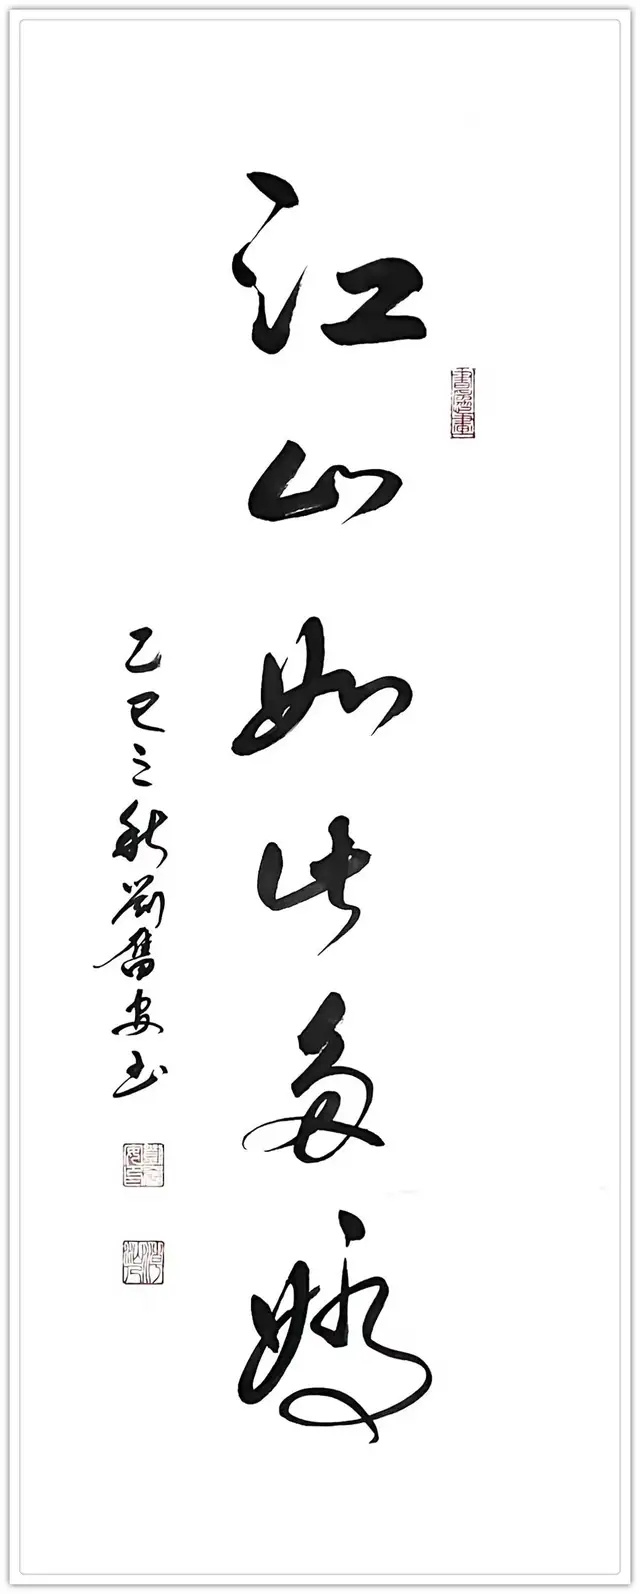 江山如此多娇
乙巳之秋劉舊安书